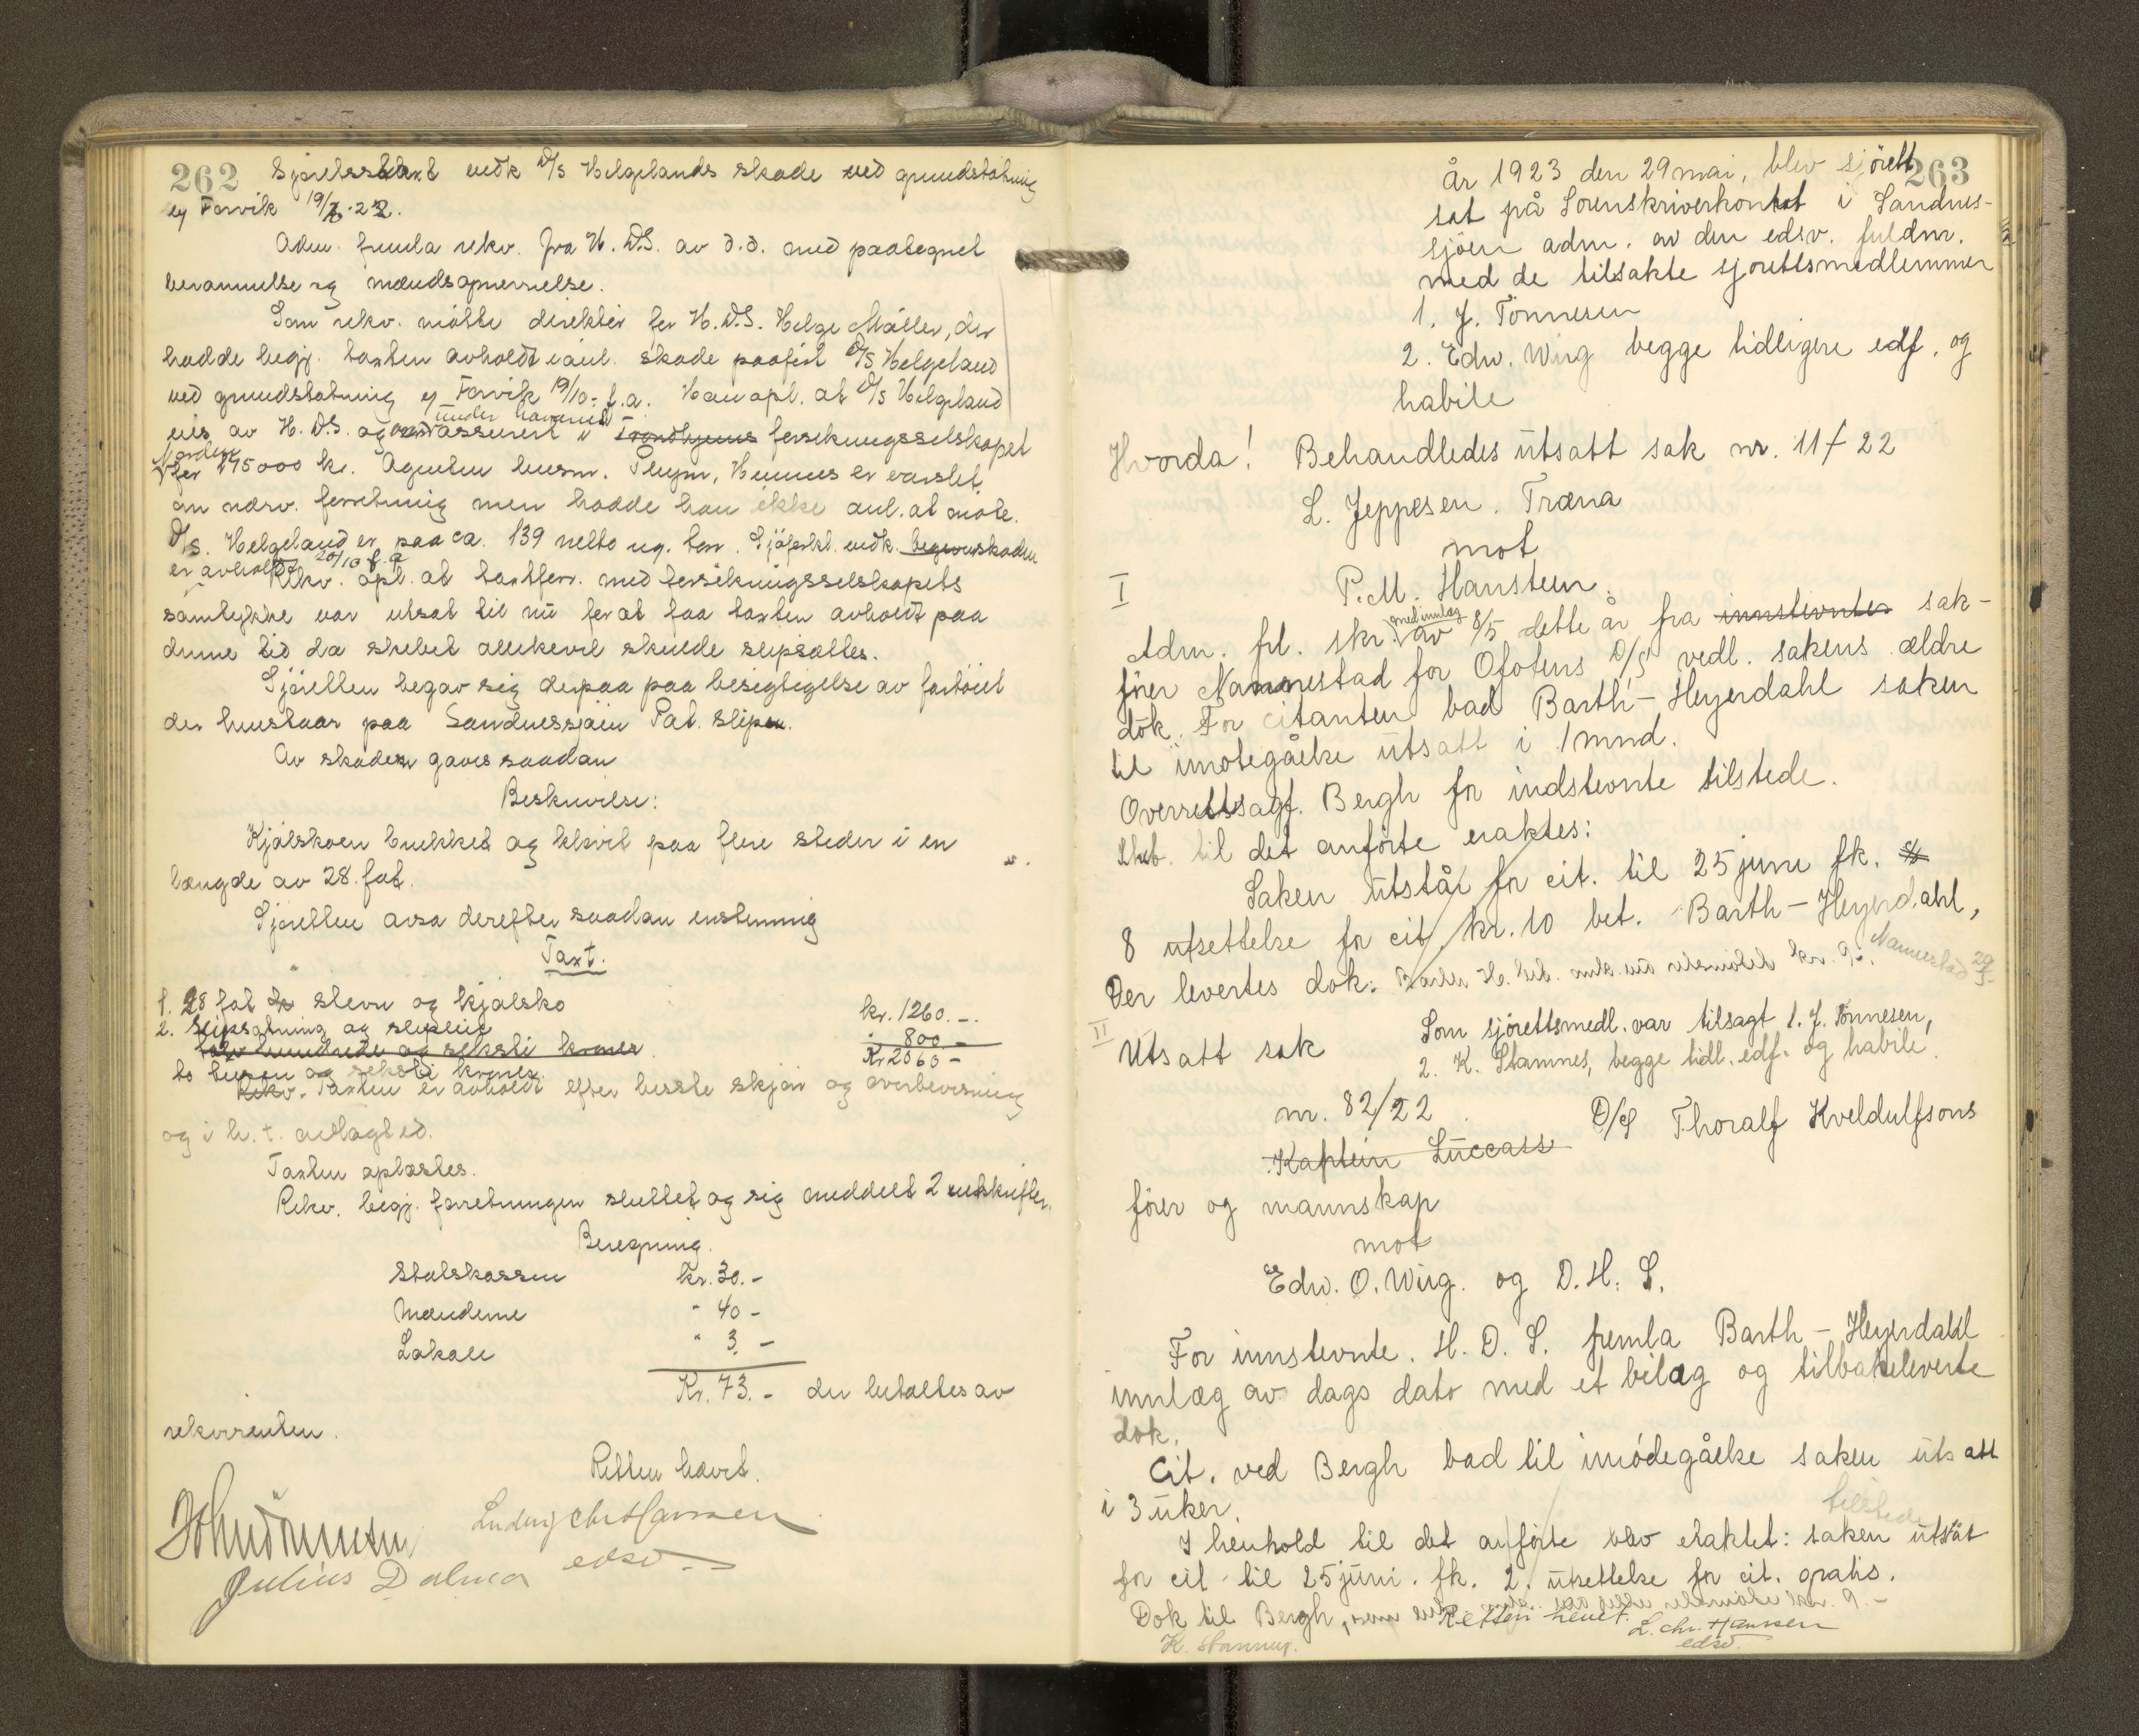 262 Sjøretsstaxt vedk D/S Helgelands skade ved grundstøtning
Forvik 19/ 22.
Adm. fremla rekv. fra H.D.S. av d.d. med paategnet
berammelse og mændsopnevnelse.
Som rekv. møtte direktør for H.D.S. Helge Møller, der
hadde begj. taxten avholdt i anl. skade paaført D/S Helgeland
ved grundstøtning Forvik 19/10. f.a. Han opl. at D/S Helgeland
eies av H.D.S. og assurert i Trondhjems forsikringsselskapet
Norden
for 175000 kr. Agenten er varslet
om nærv. forretning men hadde han ikke anl. at møte.
D/S. Helgeland er paa ca. 139 netto reg. ton. Sjøforkl. vedk. skaden
er avholdt 20/10 f.a
Rekv. opl. at taxtforr. med forsikringsselskapets
samtykke var utsat til nu for at faa taxten avholdt paa
denne tid da skibet allikevel skulde slipsættes.
Sjøretten begav sig derpaa paa besigtigelse av fartøiet
der henstaar paa Sandnessjøen Pat. slip.
Av skaden gaves saadan
Beskrivelse:
Kjølskoen brukket og kløvet paa flere steder i en
længde av 28 fot.
Sjøretten avsa derefter saadan enstemmig
Taxt.
1. 28 fot stevn og kjølsko kr. 1260.-
2. Slipsætning og slipleie 800 -
tolv hundrede og seksti kroner. Kr 2060 -
to tusen og seksti kroner.
Rekv. Taxten er avholdt efter beste skjøn og overbevisning
og i h.t. avlagt ed.
Taxten oplæstes.
Rekv. begj. forretningen sluttet og sig meddelt 2 utskrifter.
Beregning.
Statskassen kr. 30.-
Mændene " 40 -
Lokale " 3. -
Kr. 73.- der betaltes av
rekvirenten.
Retten hævet.
Ludvig Chr Hanssen
edsv
Julius Dalmo
263
År 1923 den 29 mai, blev sjörett
sat på Sorenskriverkontot i Sandnes-
sjöen adm. av den edsv. fuldm.
med de tilsakte sjorettsmedlemmer
1. J. Tönnesen
2. Edv. Wiig begge tidligere edf. og
habile
Hvorda! Behandledes utsatt sak nr. 11/22
L. Jeppesen. Træna
mot
I P.M. Hansteen.
med innlæg
Adm. frl. skr. av 8/5 dette år fra innstevntes sak-
förer Nannestad for Ofotens D/S vedl. sakens ældre
dok. For citanten bad Barth-Heyerdahl saken
til imotegåelse utsatt i 1 mnd.
Overrettssagf. Bergh for indstevnte tilstede.
til det anförte eraktes:
Saken utstår for cit. til 25 juni fk.
8 utsettelse for cit. kr. 10 bet. Barth-Heyerdahl,
Der levertes dok: Barth H. kr. 9. Nannestad 29/5
II Utsatt sak Som sjörettsmedl. var tilsagt 1. J. Tönnesen,
2. K. Stamnes, begge tidl. edf. og habile.
nr. 82/22
Kaptein Luccass D/S Thoralf Kveldulfsons
förer og mannskap
mot
Edv. O. Wiig. og D. H. S.
For innstevnte. H. D. S. fremla Barth-Heyerdahl
innlæg av dags dato med et bilag og tilbakeleverte
dok.
Cit. ved Bergh bad til imödegåelse saken utsatt
i 3 uker. tilstede
I henhold til det anförte blev eraktet: saken utståt
for cit til 25 juni. fk. 2. utsettelse for cit. gratis.
Dok til Bergh, som kr. 9.-
Retten hevet. L. Chr. Hanssen
edsv.
K. Stamnes.